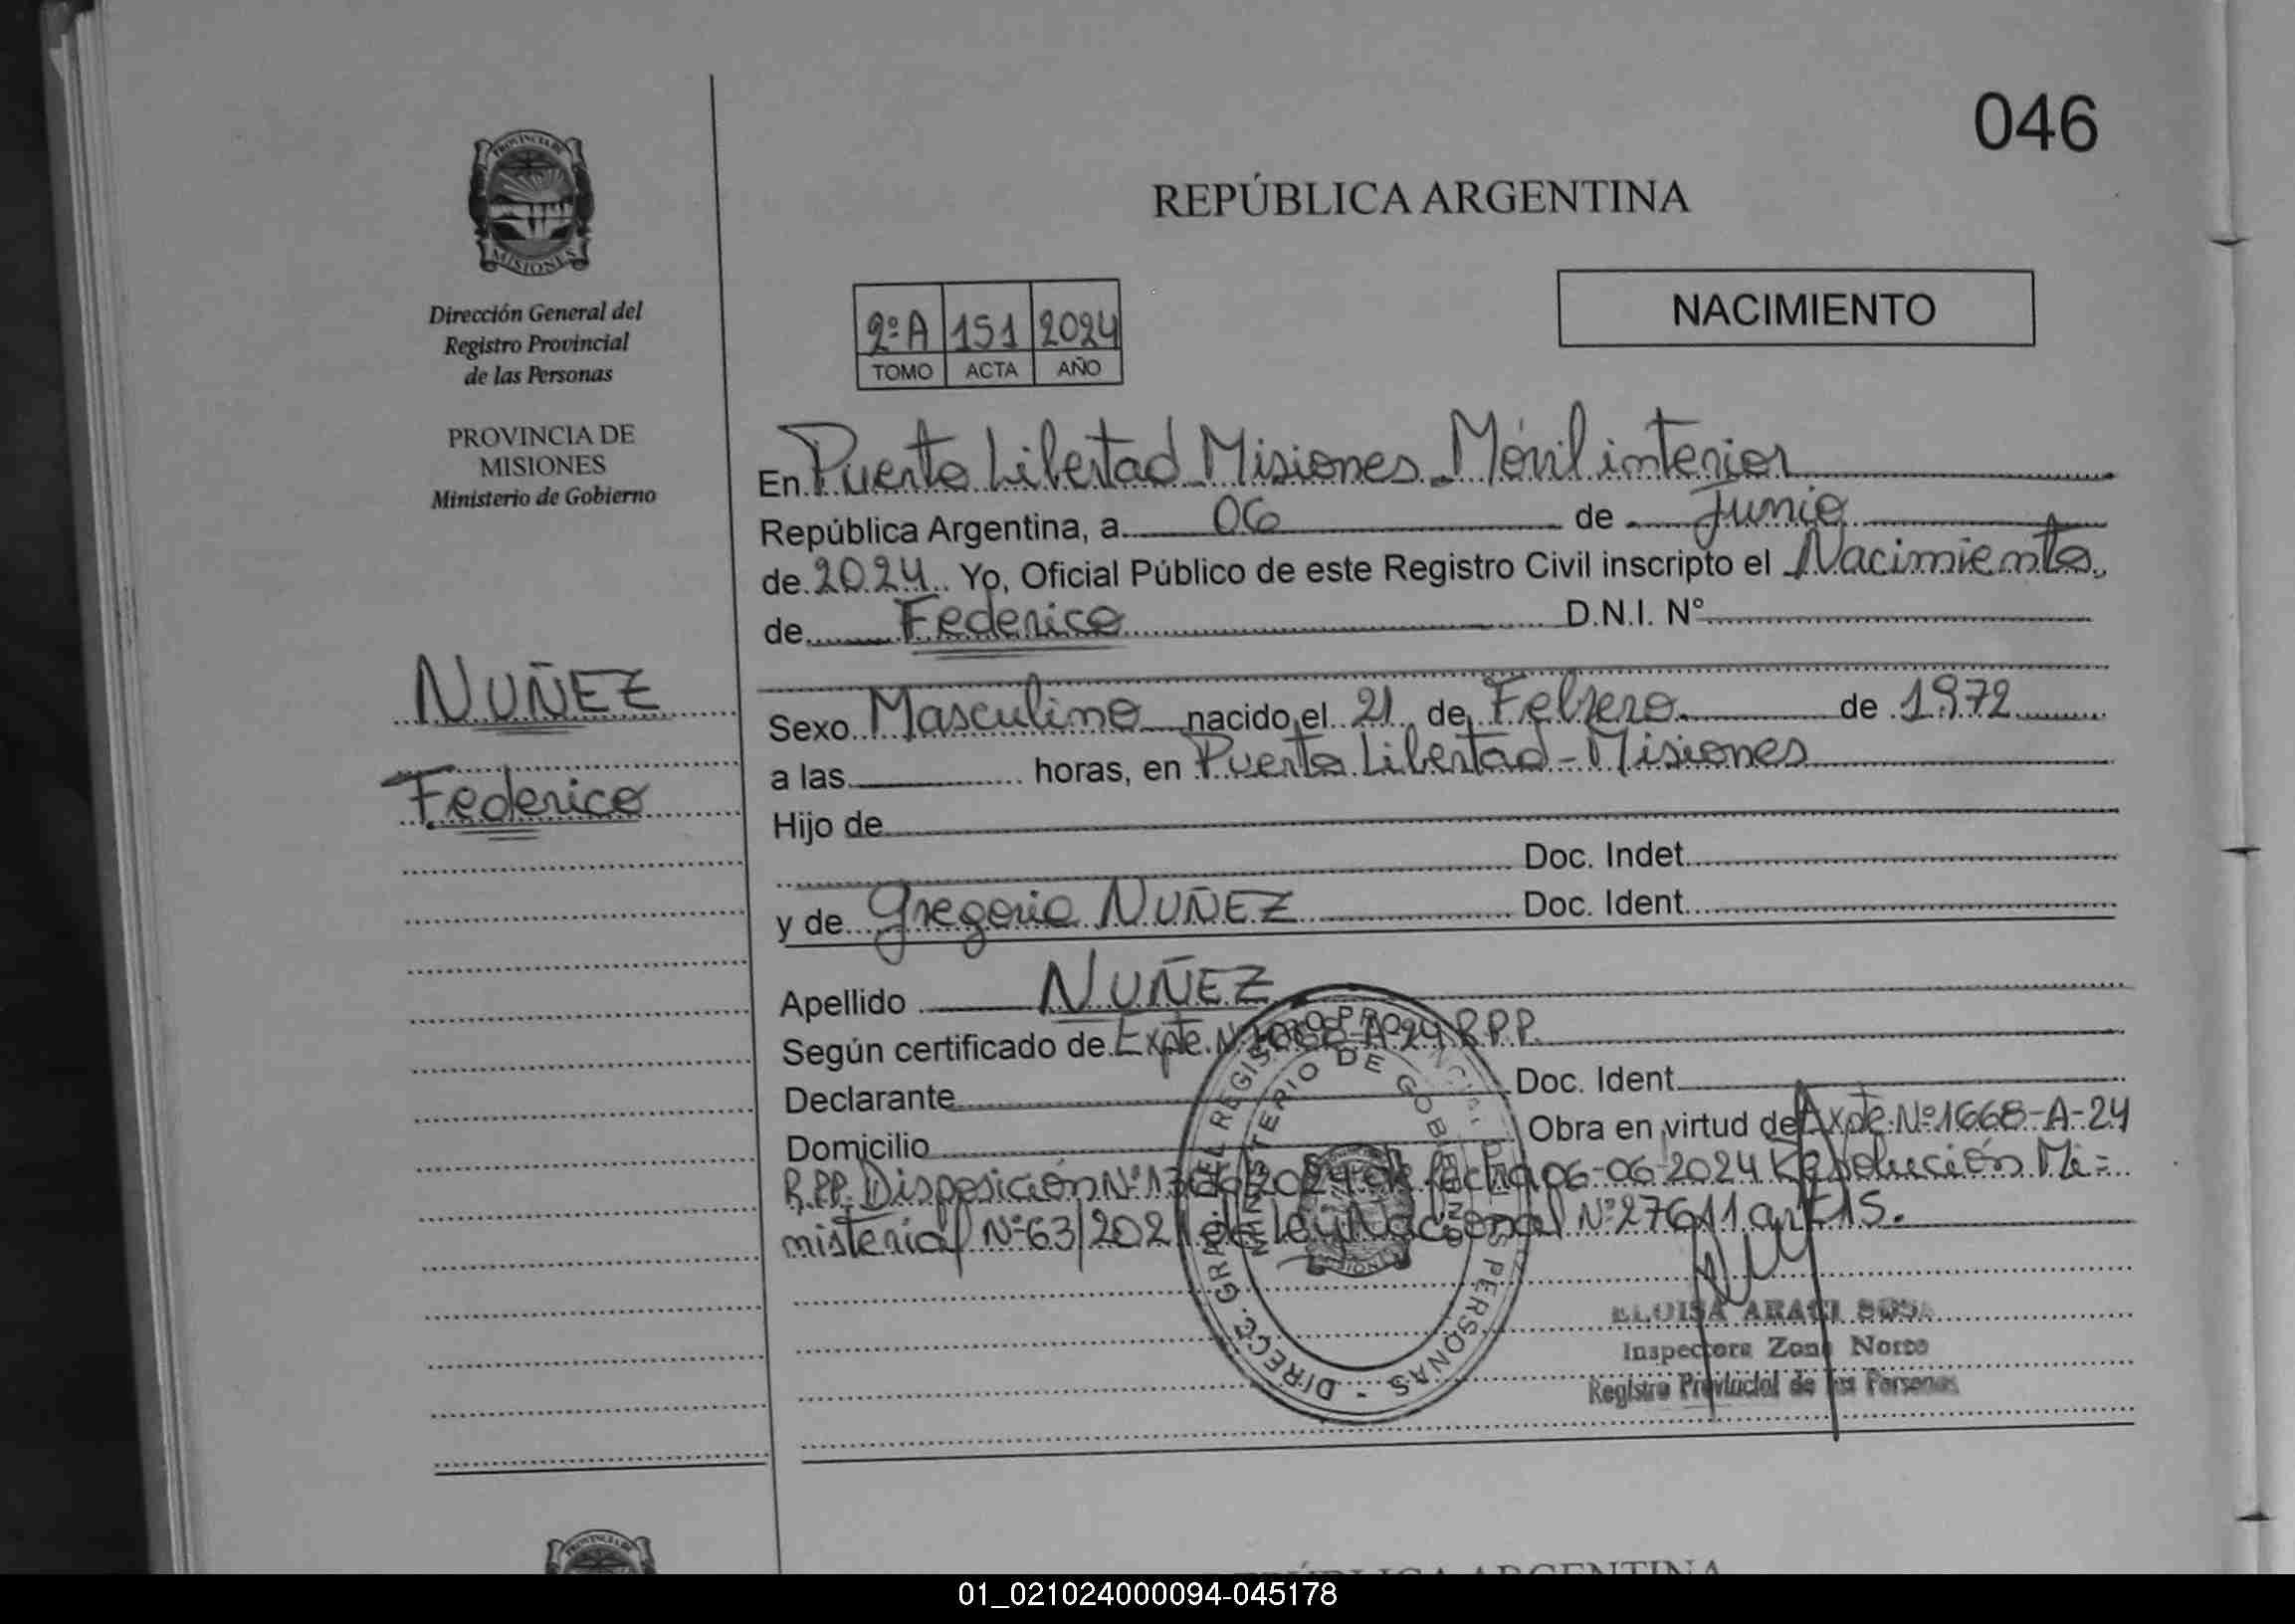 046
REPÚBLICA ARGENTINA
PROVINCIA DE
MISIONES
Dirección General del
Registro Provincial
de las Personas
PROVINCIA DE
MISIONES
Ministerio de Gobierno
NUÑEZ
Federico
2º A 151 2024
TOMO ACTA AÑO
NACIMIENTO
En Puerto Libertad Misiones - Móvil interior
República Argentina, a 06 de Junio
de 2024 Yo, Oficial Público de este Registro Civil inscripto el Nacimiento
de Federico D.N.I. Nº
Sexo Masculino nacido el 21 de Febrero de 1972
a las horas, en Puerto Libertad - Misiones
Hijo de
Doc. Indet.
y de Gregoria NUÑEZ Doc. Ident.
Apellido NUÑEZ
Según certificado de Expte. Nº 1668-A-24 R.P.P.
Declarante Doc. Ident.
Domicilio Obra en virtud de Expte. Nº 1668-A-24
R.P.P. Disposición Nº de fecha 06-06-2024 Resolución Mi=
misterial Nº 63/2021 de ley Nacional Nº 27611 art 15.
DIREC. GRAL. DEL REGISTRO PROVINCIAL DE LAS PERSONAS -
MINISTERIO DE GOBIERNO
MISIONES
ELOISA ARACI SOSA
Inspectora Zona Norte
Registro Provincial de las Personas
PROVINCIA DE
REPÚBLICA ARGENTINA
01_021024000094-045178